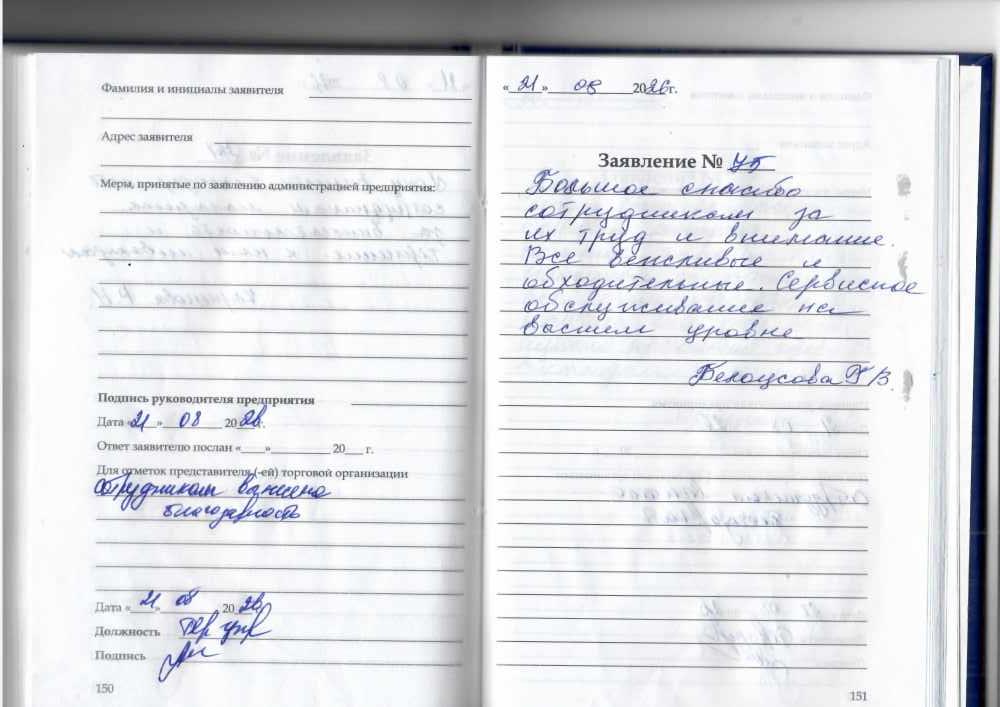 Фамилия и инициалы заявителя
Адрес заявителя
Меры, принятые по заявлению администрацией предприятия:
Подпись руководителя предприятия
Дата «21» 08 2026г.
Ответ заявителю послан «    »          20    г.
Для отметок представителя (-ей) торговой организации
сотрудникам вынесена
благодарность
Дата «21» 08 2026
Должность тер упр
Подпись
150
«21» 08 2026г.
Заявление №
Большое спасибо
сотрудникам за
их труд и внимание.
Все вежливые и
обходительные. Сервисное
обслуживание на
высшем уровне
Белоусова Г В.
151